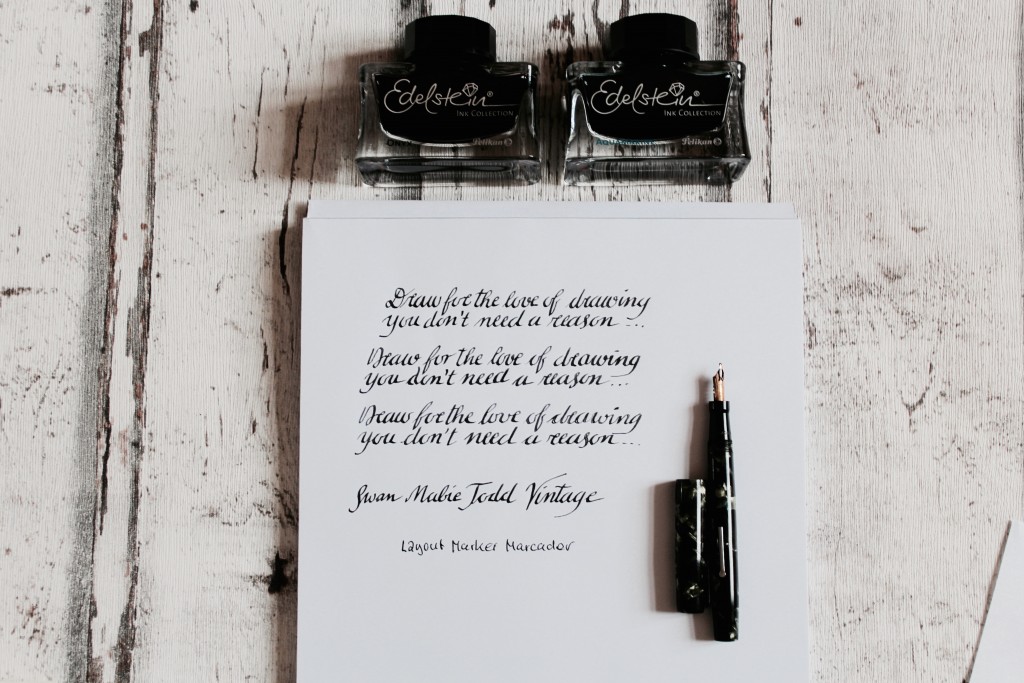 Edelstein®
INK COLLECTION
Pelikan
Edelstein®
INK COLLECTION
Pelikan
Draw for the love of drawing
you don't need a reason ...
Draw for the love of drawing
you don't need a reason ...
Draw for the love of drawing
you don't need a reason ...
Swan Mabie Todd Vintage
Layout Marker Marcador